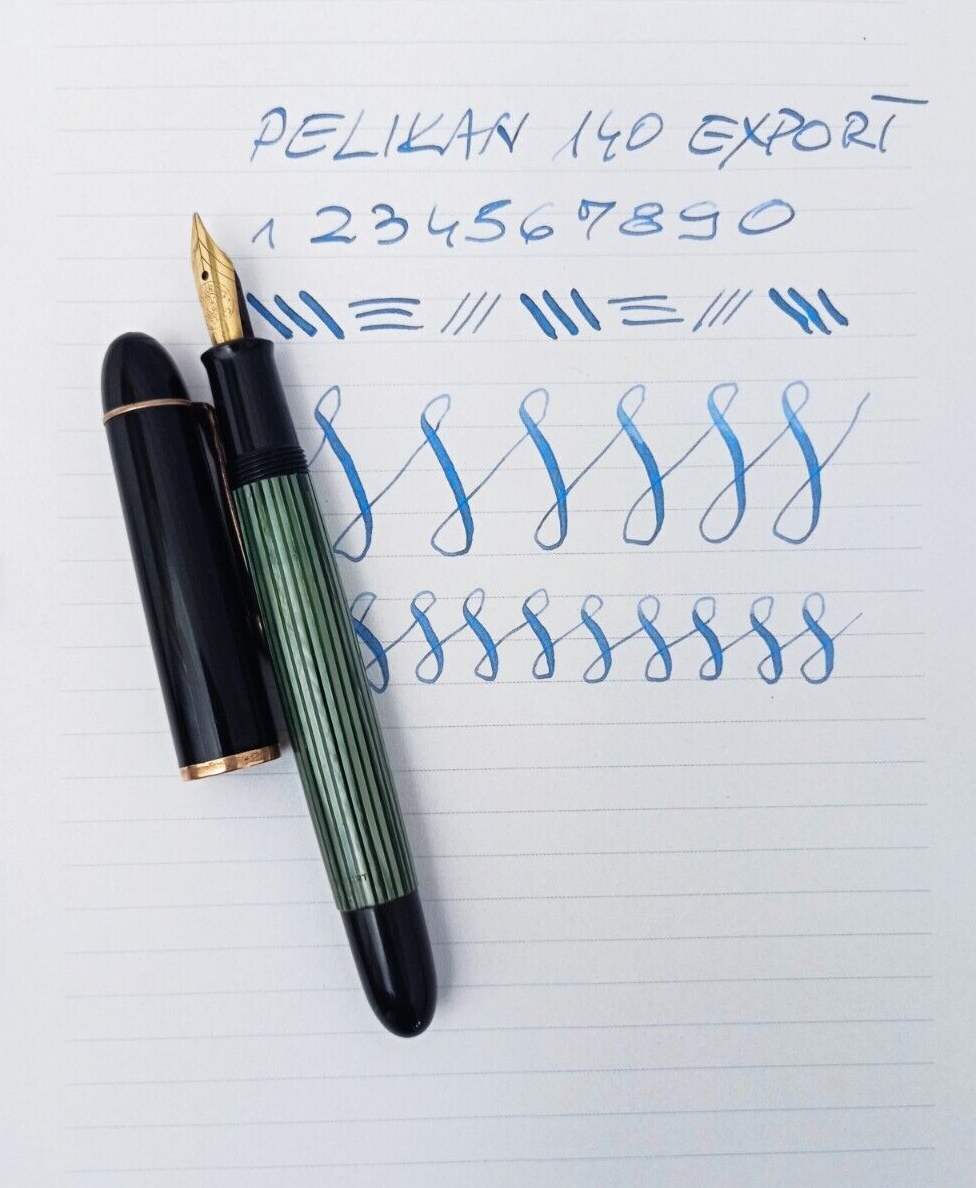 PELIKAN 140 EXPORT
1 2 3 4 5 6 7 8 9 0